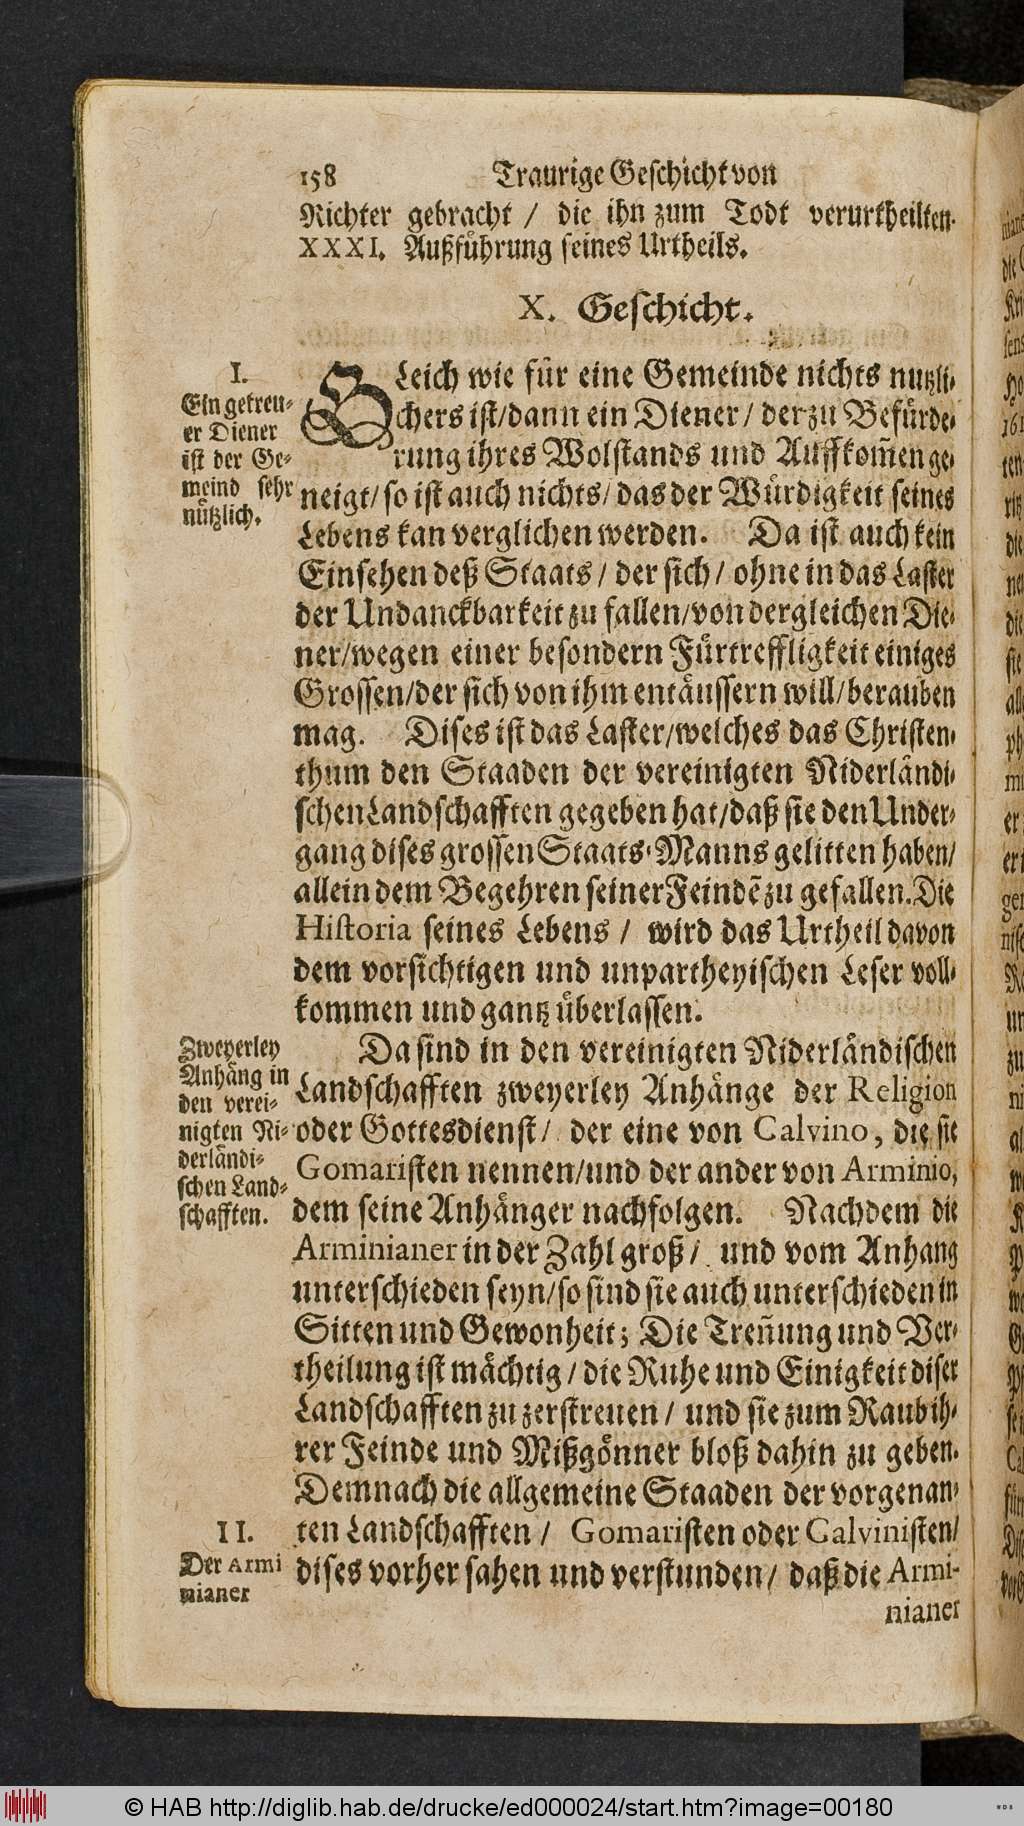 158 Traurige Geschicht von
Richter gebracht / die ihn zum Todt verurtheilten.
XXXI. Außführung seines Urtheils.
X. Geschicht.
I.
Ein getreu-
er Diener
ist der Ge-
meind sehr
nützlich.
GLeich wie für eine Gemeinde nichts nutzli-
chers ist/dann ein Diener / der zu Befürde-
rung ihres Wolstands und Auffkom̃en ge-
neigt/so ist auch nichts/das der Würdigkeit seines
Lebens kan verglichen werden. Da ist auch kein
Einsehen deß Staats / der sich / ohne in das Laster
der Undanckbarkeit zu fallen/von dergleichen Die-
ner/wegen einer besondern Fürtreffligkeit einiges
Grossen/der sich von ihm entäussern will/berauben
mag. Dises ist das Laster/welches das Christen-
thum den Staaden der vereinigten Niderländi-
schen Landschafften gegeben hat/daß sie den Under-
gang dises grossen Staats-Manns gelitten haben/
allein dem Begehren seiner Feindẽ zu gefallen. Die
Historia seines Lebens / wird das Urtheil davon
dem vorsichtigen und unpartheyischen Leser voll-
kommen und gantz überlassen.
Zweyerley
Anhäng in
den verei-
nigten Ni-
derländi-
schen Land-
schafften.
Da sind in den vereinigten Niderländischen
Landschafften zweyerley Anhänge der Religion
oder Gottesdienst / der eine von Calvino, die sie
Gomaristen nennen/und der ander von Arminio,
dem seine Anhänger nachfolgen. Nachdem die
Arminianer in der Zahl groß / und vom Anhang
unterschieden seyn/so sind sie auch unterschieden in
Sitten und Gewonheit; Die Treñung und Ver-
theilung ist mächtig / die Ruhe und Einigkeit diser
Landschafften zu zerstreuen / und sie zum Raub ih-
rer Feinde und Mißgönner bloß dahin zu geben.
Demnach die allgemeine Staaden der vorgenan-
ten Landschafften / Gomaristen oder Calvinisten/
dises vorher sahen und verstunden / daß die Armi-
II.
Der Armi
nianer
nianer
© HAB http://diglib.hab.de/drucke/ed000024/start.htm?image=00180